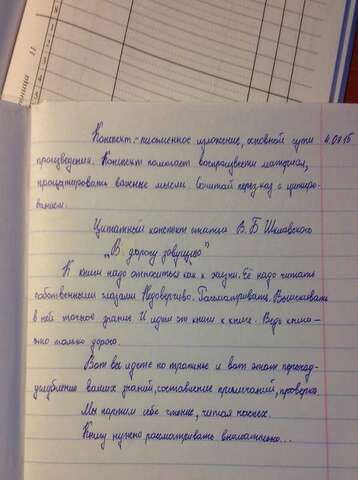 зница 11
Конспект - письменное изложение, основной сути 4.09.15
произведения. Конспект помогает воспроизвести материал,
процитировать важные мысли. Сочитай пересказ с цитиро-
ванием.
Цитатный конспект статьи В.Б Шкловского
„В дорогу зовущие"
К книги надо относиться как к жизни. Её надо читать
собственными глазами Недоверчиво. Рассматривать. Выискивать
в ней точное знание И идти от книги к книге. Ведь книга-
это только дорога.
Вот вы идете по тропинке и вот знак переход-
углубление ваших знаний, составление примечаний, проверка.
Мы портим себе чтение, читая поспех.
Книгу нужно рассматривать внимательно...